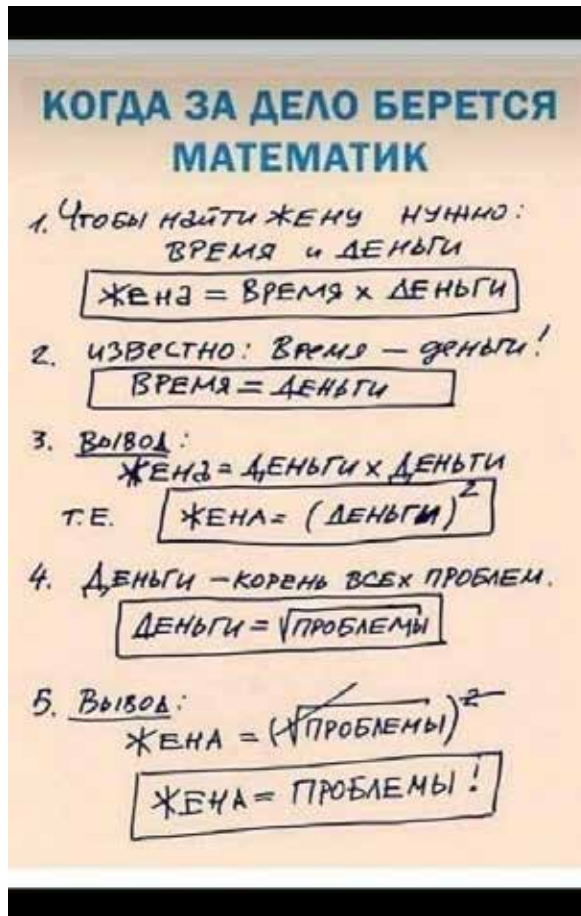 КОГДА ЗА ДЕЛО БЕРЕТСЯ
МАТЕМАТИК
1. Чтобы найти жену нужно:
ВРЕМЯ и ДЕНЬГИ
Жена = ВРЕМЯ x ДЕНЬГИ
2. ИЗВЕСТНО: Время – деньги!
ВРЕМЯ = ДЕНЬГИ
3. ВЫВОД:
ЖЕНА = ДЕНЬГИ x ДЕНЬГИ
Т.Е. ЖЕНА = (ДЕНЬГИ)²
4. ДЕНЬГИ – КОРЕНЬ ВСЕХ ПРОБЛЕМ.
ДЕНЬГИ = √ПРОБЛЕМЫ
5. ВЫВОД:
ЖЕНА = (√ПРОБЛЕМЫ)²
ЖЕНА = ПРОБЛЕМЫ!